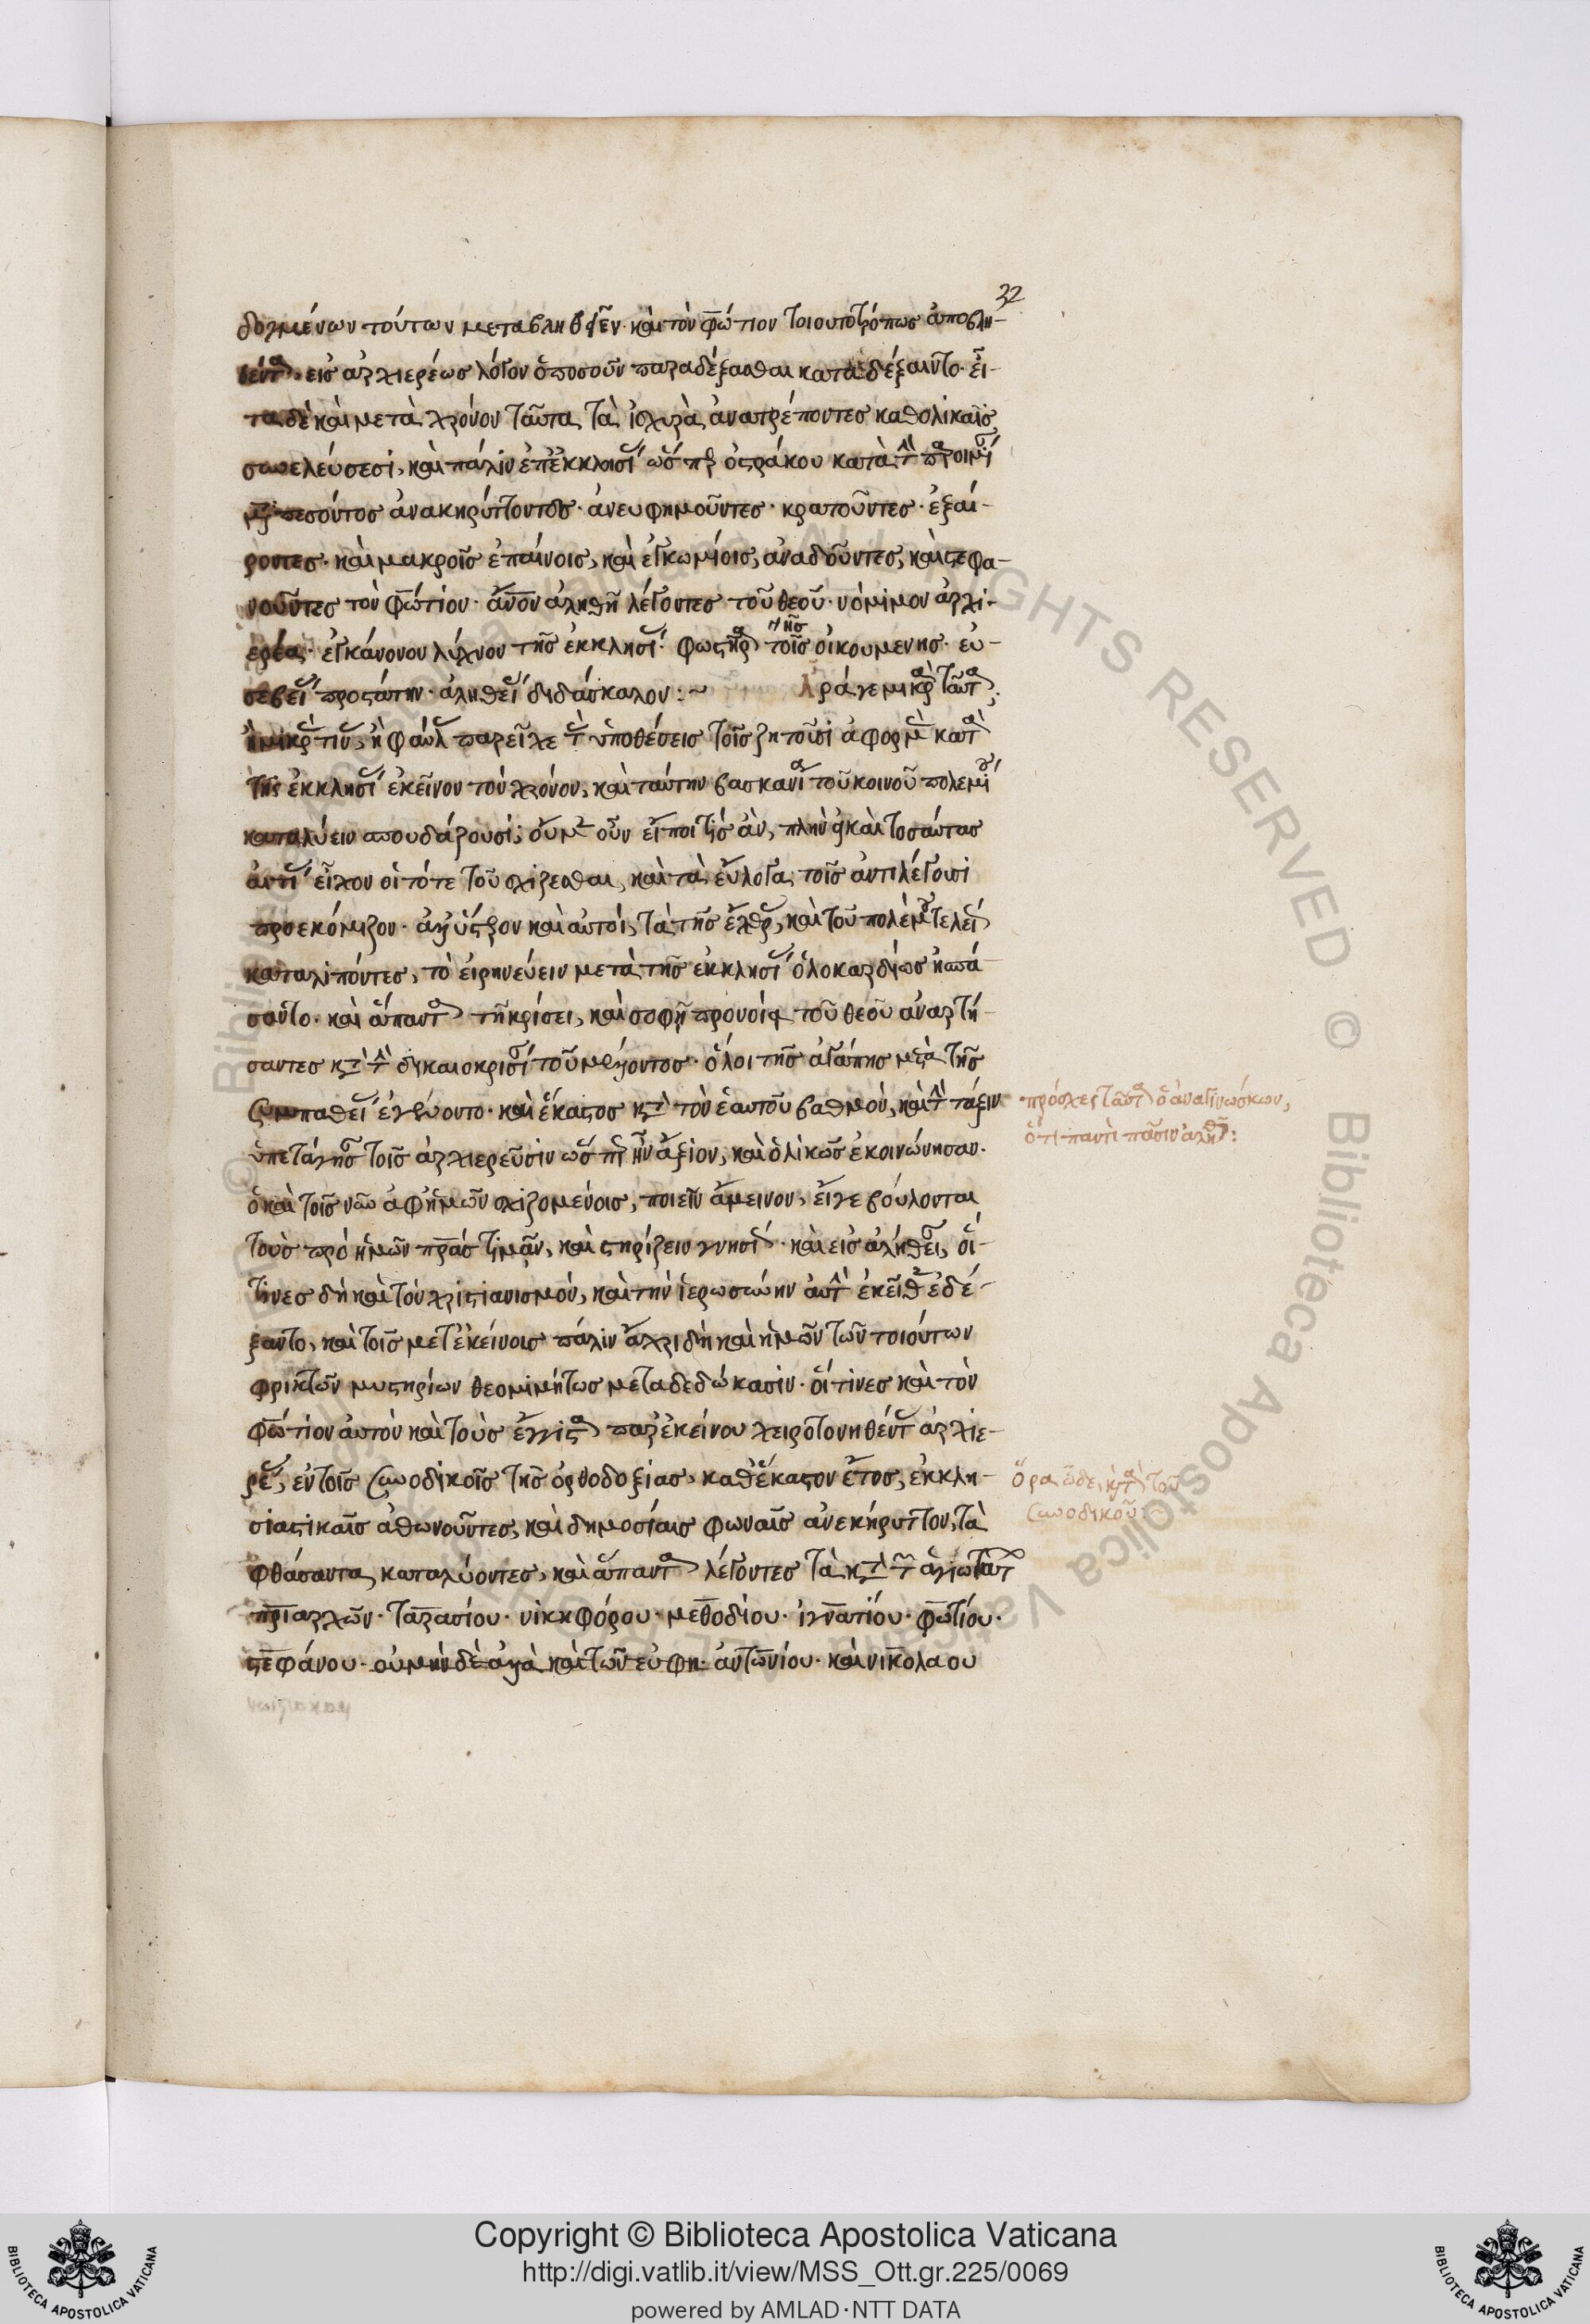 32
δογμένων τούτων μεταβληθῆν· καὶ τὸν φώτιον τοιουτοτρόπως ἀποβλη-
θέντα, εἰς ἀρχιερέως λόγον ὁποσοῦν παραδέξασθαι καταδέξαιντο· εἶ-
τα δὲ καὶ μετὰ χρόνον ταῦτα τὰ ἰσχυρὰ ἀνατρέποντες καθολικαῖς
συνελεύσεσι, καὶ πάλιν ἐπ' ἐκκλησίας ὥσπερ ὀστράκου κατὰ τὴν παροιμίαν
μεταπεσόντος ἀνακηρύττοντες· ἀνευφημοῦντες· κρατοῦντες· ἐξαί-
ροντες· καὶ μακροῖς ἐπαίνοις, καὶ ἐγκωμίοις, ἀναδοῦντες, καὶ στεφα-
νοῦντες τὸν φώτιον· ἄνον ἀληθῆ λέγοντες τοῦ θεοῦ· νόμιμον ἀρχι-
ερέα· ἐγκάνονον λύχνον τῆς ἐκκλησίας· φωστῆρα τοῖς οἰκουμενης· εὐ-
τῆς
σεβείας προστάτην· ἀληθείας διδάσκαλον:~ Ἆρά γε μικρὰ ταῦτα;
ἢ μικράς τινας, ἢ φαύλας παρεῖχε τὰς ὑποθέσεις τοῖς ζητοῦσι ἀφορμὰς κατὰ
τῆς ἐκκλησίας ἐκεῖνον τὸν χρόνον, καὶ ταύτην βασκανίᾳ τοῦ κοινοῦ πολεμίου
καταλύειν σπουδάζουσι; οὐμενοῦν εἴποι τίς ἂν, πλὴν ἀλλὰ καὶ τοσαύτας
αἰτίας εἶχον οἱ τότε τοῦ σχίζεσθαι, καὶ τὰ εὔλογα τοῖς ἀντιλέγουσι
προεκόμιζον· ἀλλ' ὕστερον καὶ αὐτοὶ, τὰ τῆς ἔχθρας, καὶ τοῦ πολέμου τελείως
καταλιπόντες, τὸ εἰρηνεύειν μετὰ τῆς ἐκκλησίας ὁλοκαρδίως ἠσπά-
σαντο· καὶ ἅπαντα τῇ κρίσει, καὶ σοφῇ προνοίᾳ τοῦ θεοῦ ἀναρτή-
σαντες κατὰ τὴν δικαιοκρισίαν τοῦ μέλλοντος· ὅλοι τῆς ἀγάπης μετὰ τῆς
συμπαθείας ἐγένοντο· καὶ ἕκαστος κατὰ τὸν ἑαυτοῦ βαθμὸν, καὶ τὴν τάξιν
ὑπετάγησαν τοῖς ἀρχιερεῦσιν ὥσπερ ἦν ἄξιον, καὶ ὁλικῶς ἐκοινώνησαν.
ὃ καὶ τοῖς νῦν ἀφ' ἡμῶν σχιζομένοις, ποιεῖν ἄμεινον, εἴγε βούλονται
τοὺς πρὸ ἡμῶν πρας τιμᾶν, καὶ στηρίζειν γνησίως· καὶ εἰς ἀλήθειαν, οἵ-
τινες δὴ καὶ τὸν χριστιανισμὸν, καὶ τὴν ἱερωσύνην αὐτὴν ἐκεῖθεν ἐδέ-
ξαντο, καὶ τοῖς μετ' ἐκείνοις πάλιν ἄχρι δὴ καὶ ἡμῶν τῶν τοιούτων
φρικτῶν μυστηρίων θεομιμήτως μεταδεδώκασιν· οἵτινες καὶ τὸν
φώτιον αὐτὸν καὶ τοὺς ἔγγιστα παρ' ἐκείνου χειροτονηθέντας ἀρχιε-
ρέας, ἐν τοῖς συνοδικοῖς τῆς ὀρθοδοξίας, καθ' ἕκαστον ἔτος, ἐκκλη-
σιαστικαῖς ἀθωνοῦντες, καὶ δημοσίαις φωναῖς ἀνεκήρυττον, τὰ
φθάσαντα καταλύοντες, καὶ ἅπαντα λέγοντες τὰ κατὰ τῶν ἁγιωτάτων
πριαρχῶν· ταρασίου· νικηφόρου· μεθοδίου· ἰγνατίου· φωτίου·
στεφάνου· οὐ μὴν δὲ ἀλλὰ καὶ τῶν εὐφη· ἀντωνίου· καὶ νικολαου
πρόσχες ταῦτα ὁ ἀναγινώσκων,
ὅτι παντὶ πᾶσιν ἀληθῆ:
ὅρα ὧδε, κατὰ τοῦ
συνοδικοῦ:
Copyright © Biblioteca Apostolica Vaticana
http://digi.vatlib.it/view/MSS_Ott.gr.225/0069
powered by AMLAD·NTT DATA
BIBLIOTECA APOSTOLICA VATICANA
BIBLIOTECA APOSTOLICA VATICANA